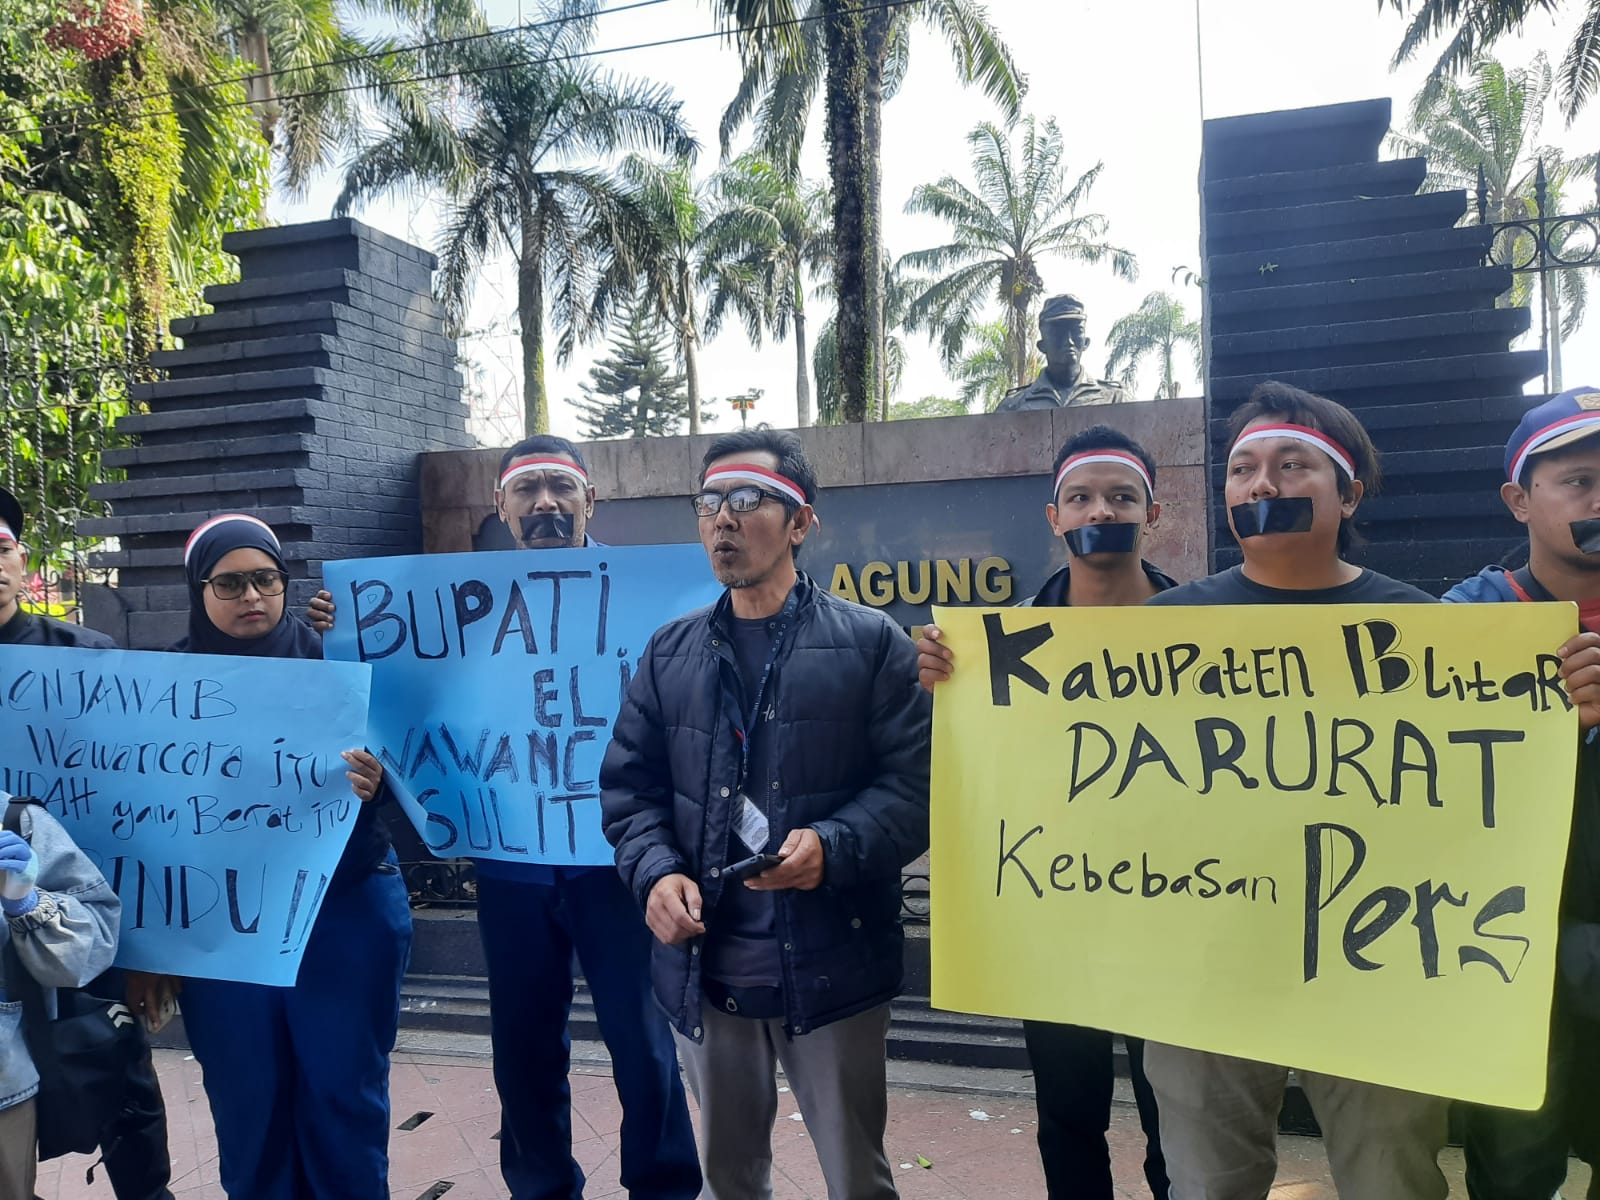 MENJAWAB
Wawancara itu
yang Berat itu
RINDU!!
BUPATI
WAWANC
SULIT
AGUNG
KabuPatEn BLitaR
DARURAT
Kebebasan Pers